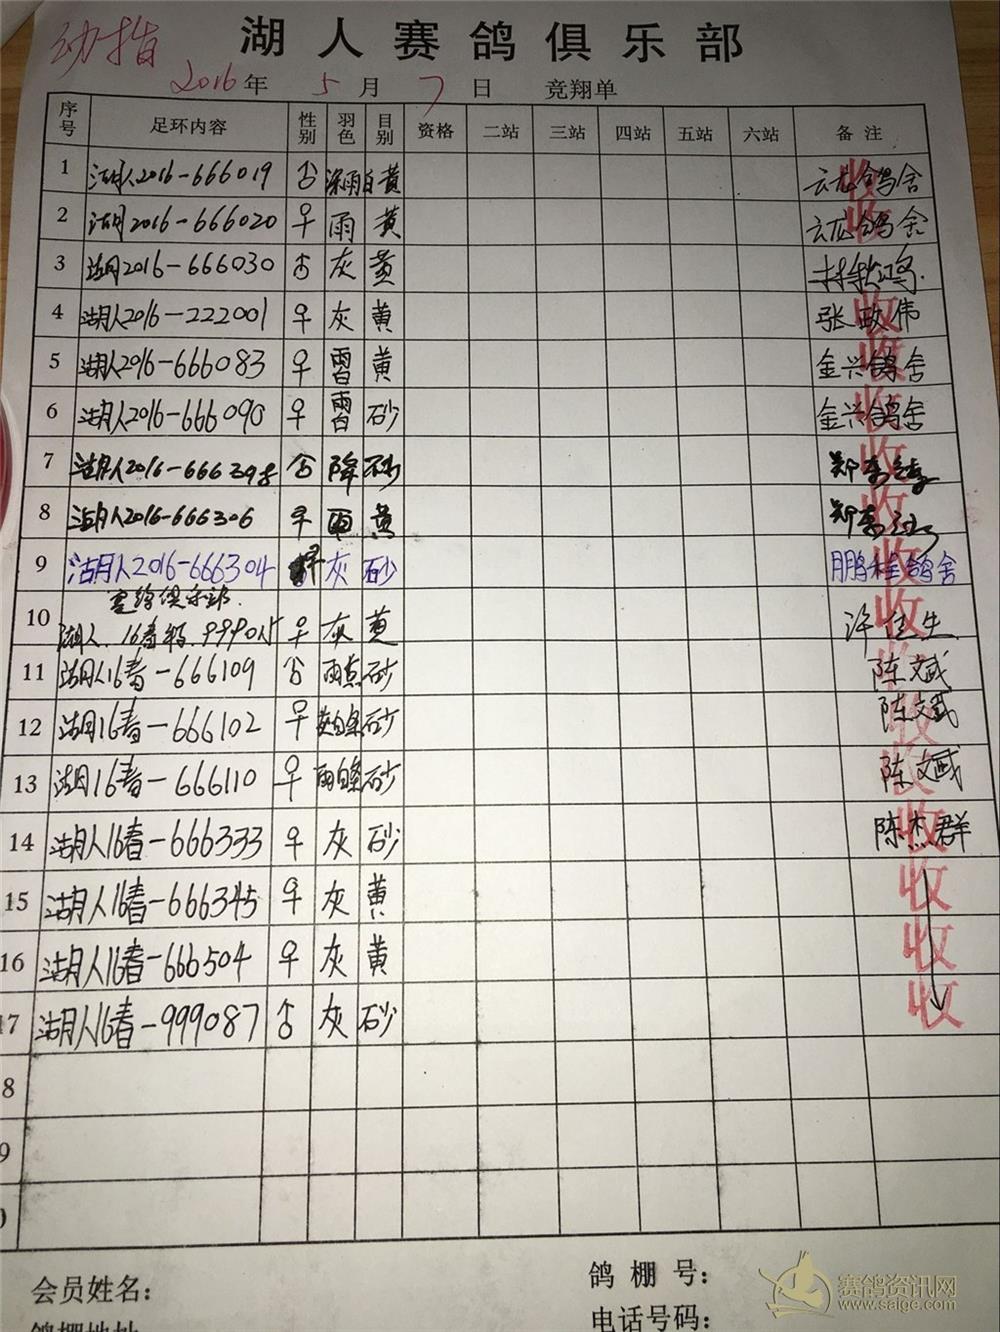 湖人赛鸽俱乐部
幼指
2016年 5月 7日 竞翔单
序号 足环内容 性别 羽色 目别 资格 二站 三站 四站 五站 六站 备注
1 湖人2016-666019 ♂ 深雨白 黄 云龙鸽舍 收
2 湖人2016-666020 ♀ 雨 黄 云龙鸽舍 收
3 湖人2016-666030 ♂ 灰 黄 林秋鸿.
4 湖人2016-222001 ♀ 灰 黄 张政伟 收
5 湖人2016-666083 ♀ 雨白 黄 金兴鸽舍 收
6 湖人2016-666090 ♀ 雨白 砂 金兴鸽舍 收
7 湖人2016-666398 ♂ 降 砂 郑 收
8 湖人2016-666306 ♀ 雨 黄 郑 收
9 湖人2016-666304 ♀ 灰 砂 鹏程鸽舍 收
赛鸽俱乐部.
10 湖人.16春 999015 ♀ 灰 黄 许佳生 收
11 湖人16春-666109 ♂ 雨点 砂 陈文斌 收
12 湖人16春-666102 ♀ 灰白条 砂 陈文斌 收
13 湖人16春-666110 ♀ 雨白条 砂 陈文斌 收
14 湖人16春-666333 ♀ 灰 砂 陈杰群 收
15 湖人16春-666345 ♀ 灰 黄 收
16 湖人16春-666504 ♀ 灰 黄 收
17 湖人16春-999087 ♂ 灰 砂 收
8
9
0
会员姓名： 鸽棚号：
鸽棚地址 电话号码：
赛鸽资讯网
www.saige.com